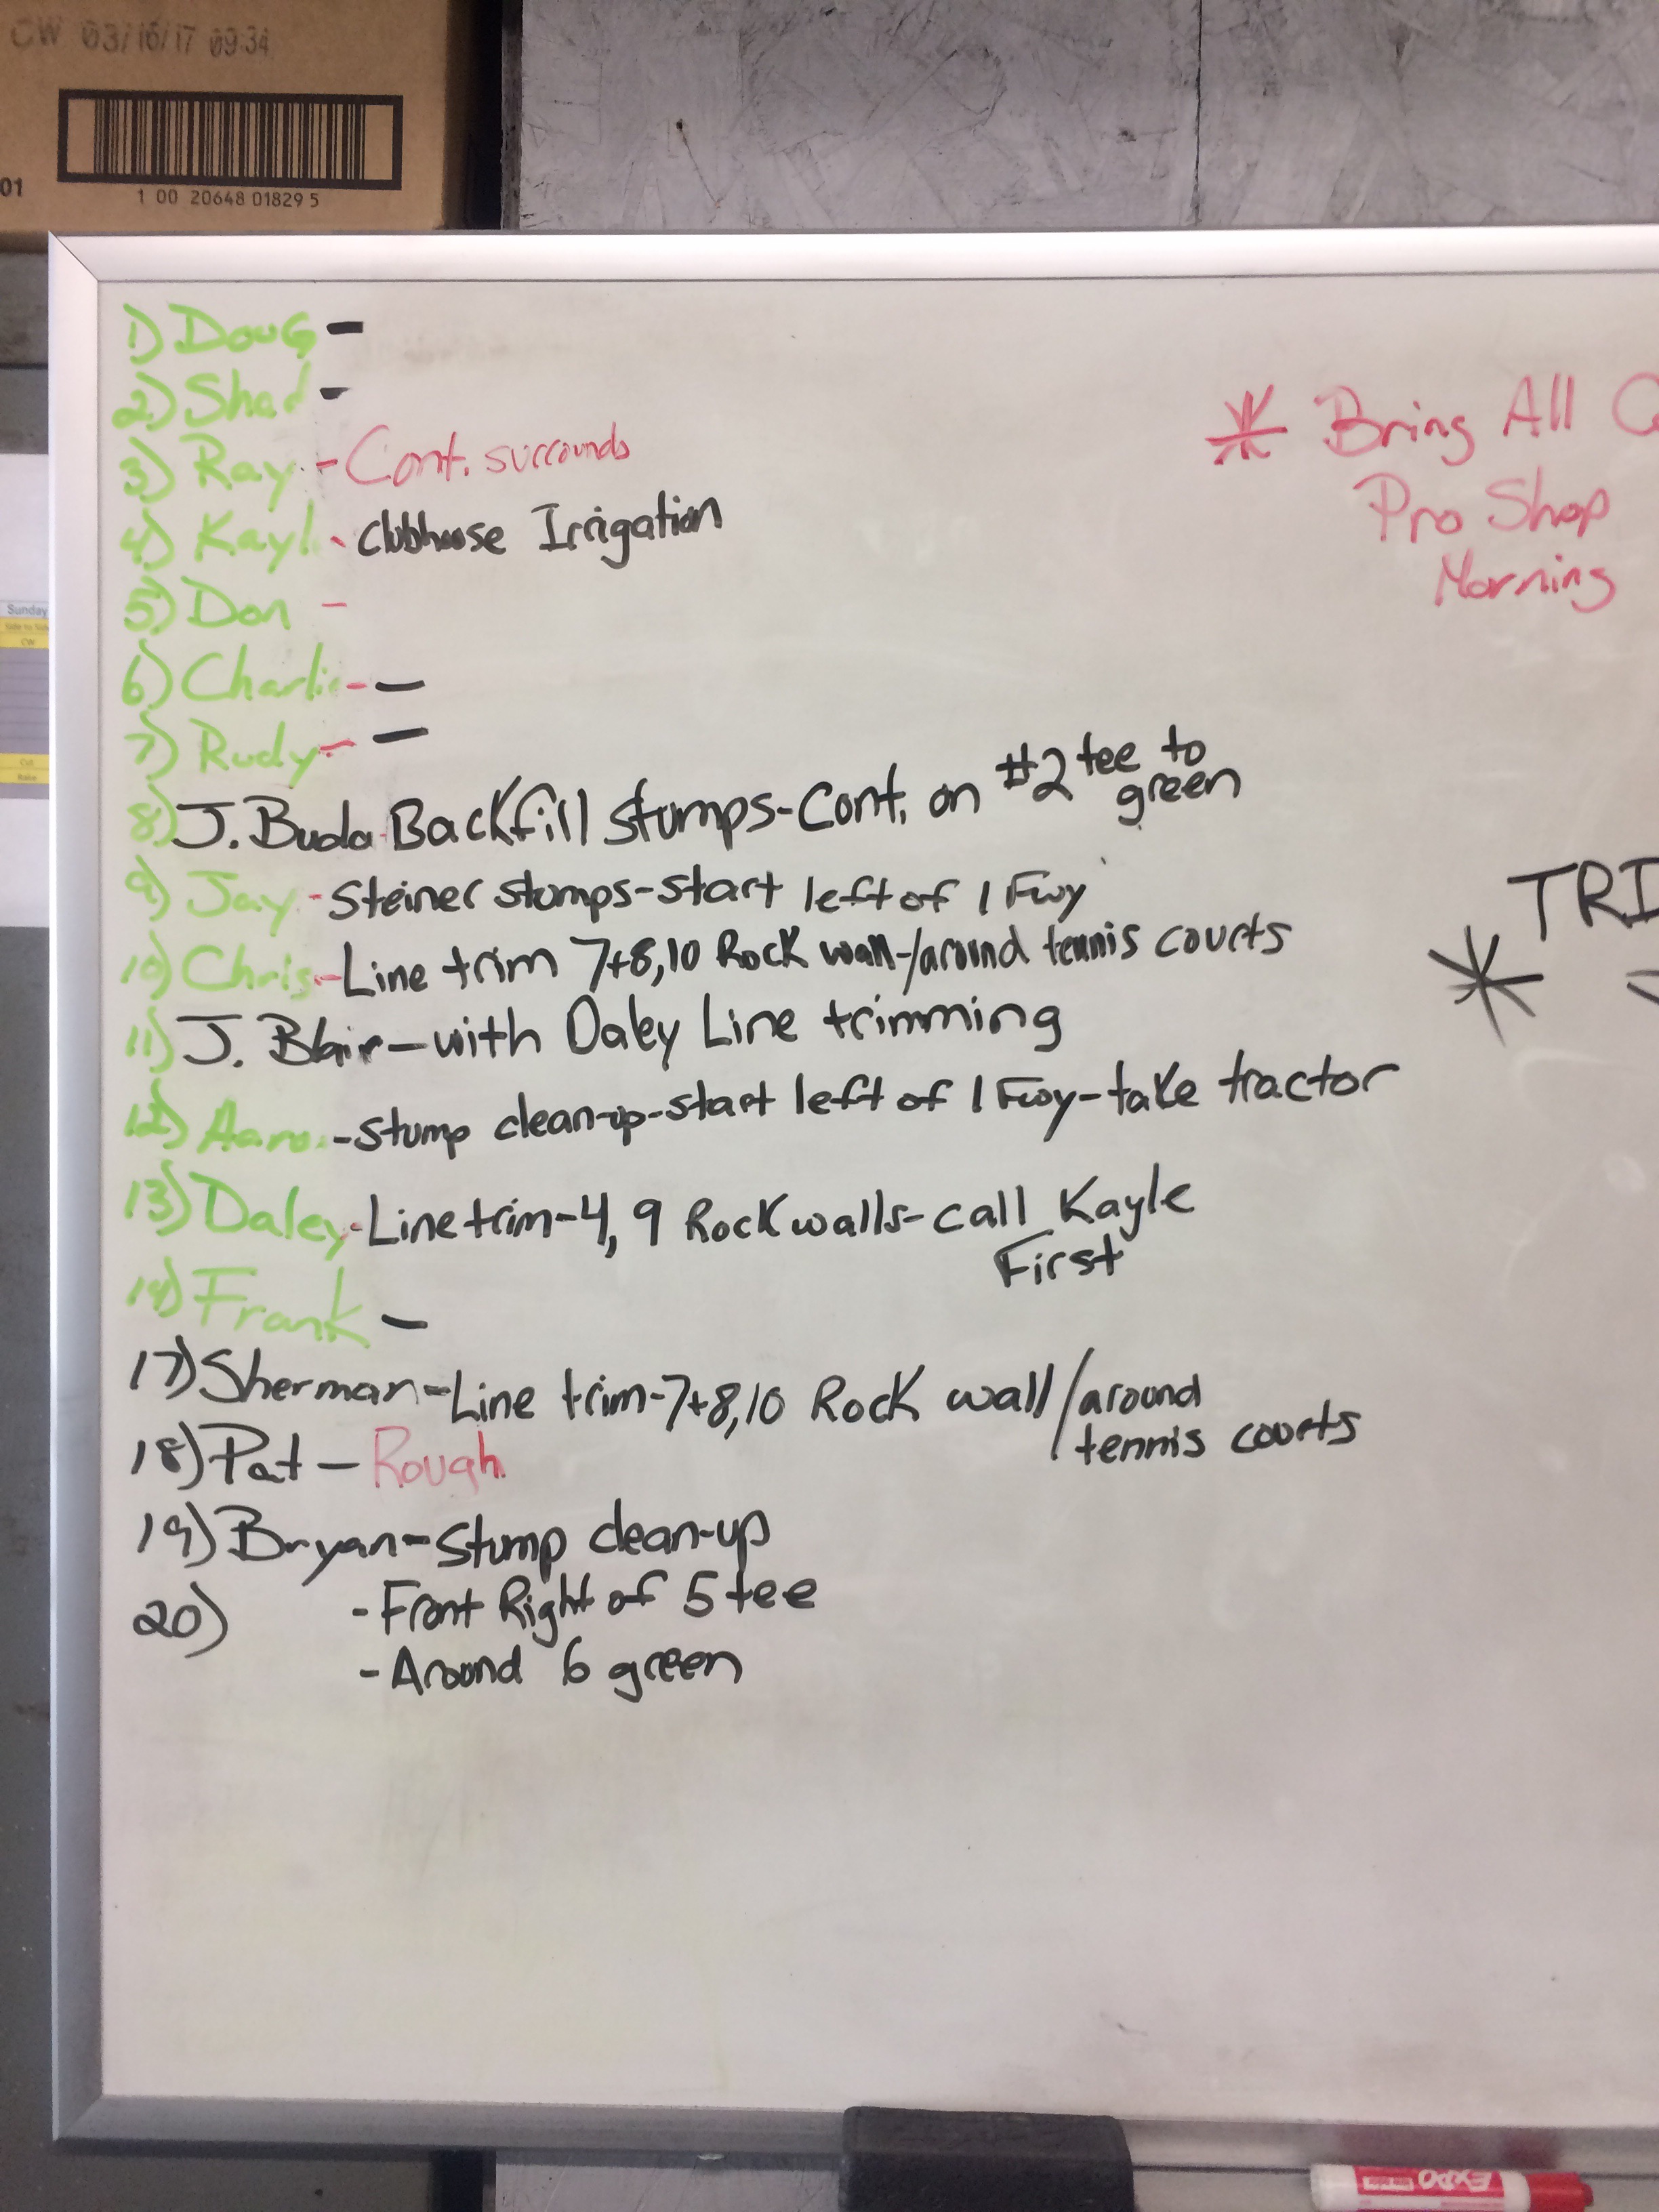 CW 03/16/17 09:34
01
1 00 20648 01829 5
1) Doug -
2) Shad -
3) Ray - Cont. surrounds
4) Kayl - Clubhouse Irrigation
5) Don -
6) Charlie - -
7) Rudy - -
8) J. Buda - Backfill stumps - Cont. on #2 tee to
green
9) Jay - Steiner stumps - start left of 1 Fwy
10) Chris - Line trim 7+8,10 Rock wall -/around tennis courts
11) J. Blair - with Daley Line trimming
12) Aaro - Stump clean-up - start left of 1 Fwy - take tractor
13) Daley - Line trim - 4, 9 Rock walls - call Kayle
First
14) Frank -
17) Sherman - Line trim - 7+8,10 Rock wall / around
tennis courts
18) Pat - Rough
19) Bryan - Stump clean-up
20) - Front Right of 5 tee
- Around 6 green
* Bring All
Pro Shop
Morning
* TRI
Sunday
Side to Side
CW
Cut
Rake
EXPO